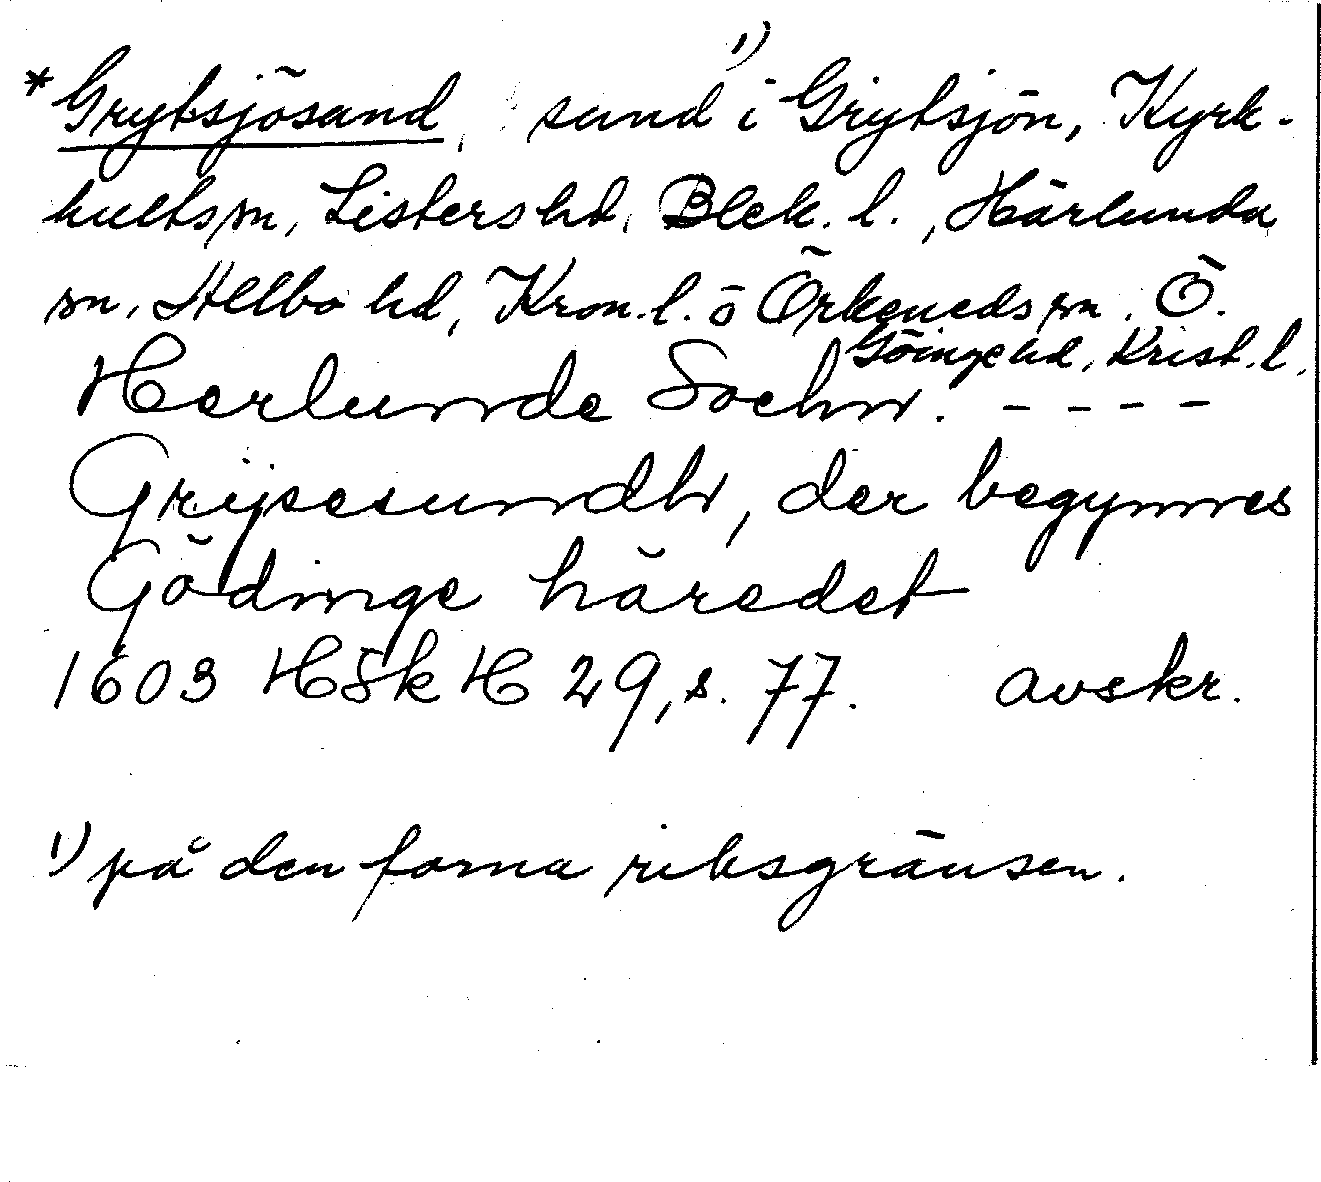 *Grytsjösund, sund ¹) i Grytsjön, Kyrk-
hults sn, Listers hd, Blek. l., Härlunda
sn, Allbo hd, Kron. l. o Örkeneds sn, Ö.
Göinge hd, Krist. l.
Herlunde Sochn. - - - -
Grijsesundh, der begynnes
Gödinge häredet
1603 HSk H 29, s. 77. avskr.
¹) på den forna riksgränsen.